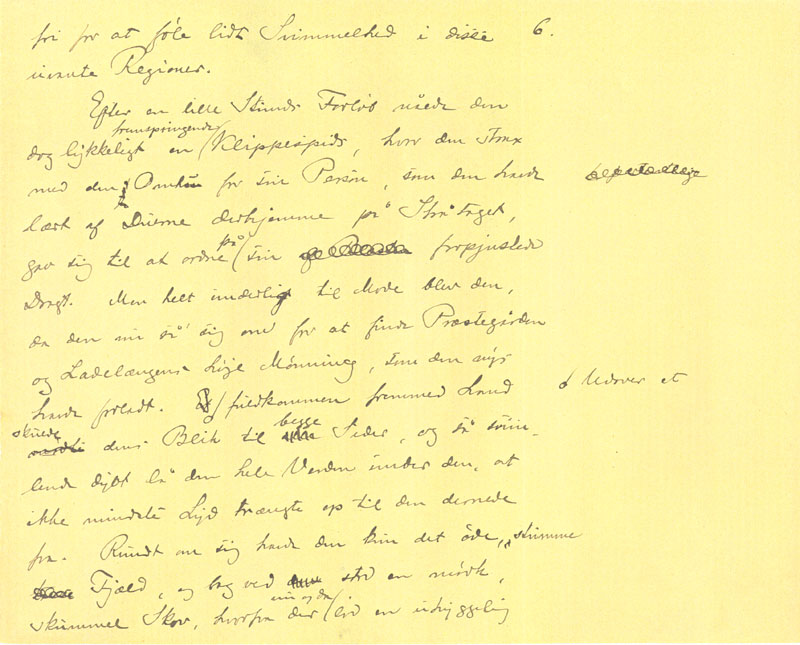 fri for at føle lidt Svimmelhed i disse 6.
uvante Regioner.
Efter en lille Stunds Forløb nåede den
fremspringende
dog lykkeligt en Klippespids, hvor den strax
med den Omhu for sin Person, som den havde
lært af Duerne derhjemme på Stråtaget,
på
gav sig til at ordne sin forpjuskede
Dragt. Men helt underlig til Mode blev den,
da den nu så sig om for at finde Præstegården
og Ladelængens høje Mønning, som den nys
havde forladt. fuldkommen fremmed Land Udover et
skuede begge
dens Blik til Sider, og så svim-
lende dybt lå den hele Verden under den, at
ikke mindste Lyd trængte op til den dernede
fra. Rundt om sig havde den kun det øde, stumme
Fjæld, og bag ved stod en mørk,
nu og da
skummel Skov, hvorfra der lød en uhyggelig